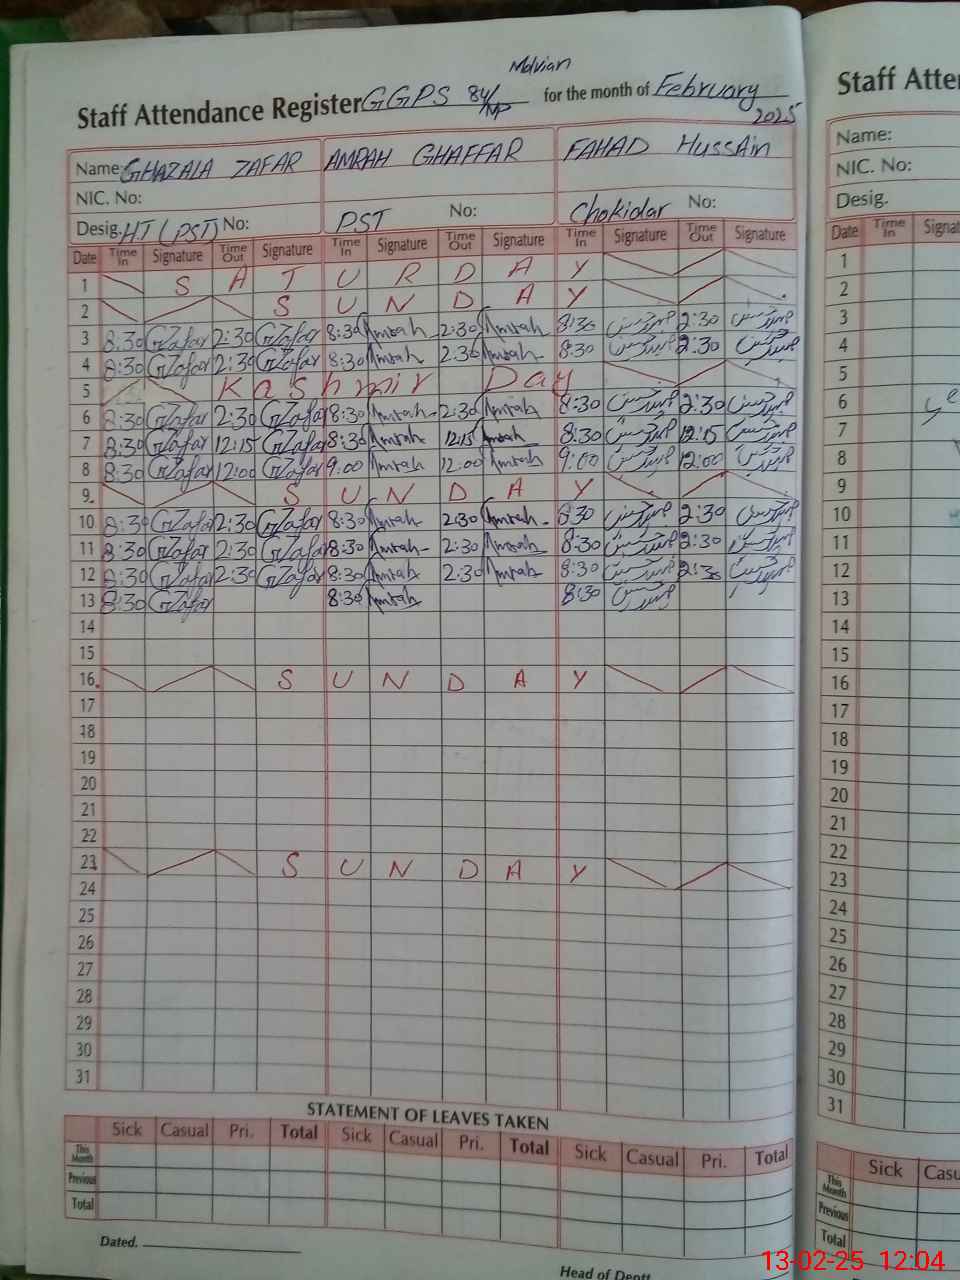 Molvian
Staff Attendance Register GGPS 84/MP for the month of February
2025
Name: GHAZALA ZAFAR AMRAH GHAFFAR FAHAD HussAin
NIC. No:
Desig. HT (PST) No: PST No: Chokidar No:
Date Time In Signature Time Out Signature Time In Signature Time Out Signature Time In Signature Time Out Signature
1 S A T U R D A Y
2 S U N D A Y
3 8:30 GZafar 2:30 GZafar 8:30 Amrah 2:30 Amrah 8:30 2:30
4 8:30 GZafar 2:30 GZafar 8:30 Amrah 2:30 Amrah 8:30 2:30
5 Kashmir Day
6 8:30 GZafar 2:30 GZafar 8:30 Amrah 2:30 Amrah 8:30 2:30
7 8:30 GZafar 12:15 GZafar 8:30 Amrah 12:15 Amrah 8:30 12:15
8 8:30 GZafar 12:00 GZafar 9:00 Amrah 12:00 Amrah 9:00 12:00
9 S U N D A Y
10 8:30 GZafar 2:30 GZafar 8:30 Amrah 2:30 Amrah 8:30 2:30
11 8:30 GZafar 2:30 GZafar 8:30 Amrah 2:30 Amrah 8:30 2:30
12 8:30 GZafar 2:30 GZafar 8:30 Amrah 2:30 Amrah 8:30 2:30
13 8:30 GZafar 8:30 Amrah 8:30
14
15
16 S U N D A Y
17
18
19
20
21
22
23 S U N D A Y
24
25
26
27
28
29
30
31
STATEMENT OF LEAVES TAKEN
Sick Casual Pri. Total Sick Casual Pri. Total Sick Casual Pri. Total
This Month
Previous
Total
Dated.
Head of Deptt
Staff Atte
Name:
NIC. No:
Desig.
Date Time In Signat
1
2
3
4
5
6
7
8
9
10
11
12
13
14
15
16
17
18
19
20
21
22
23
24
25
26
27
28
29
30
31
Sick Casu
This Month
Previous
Total
13-02-25 12:04